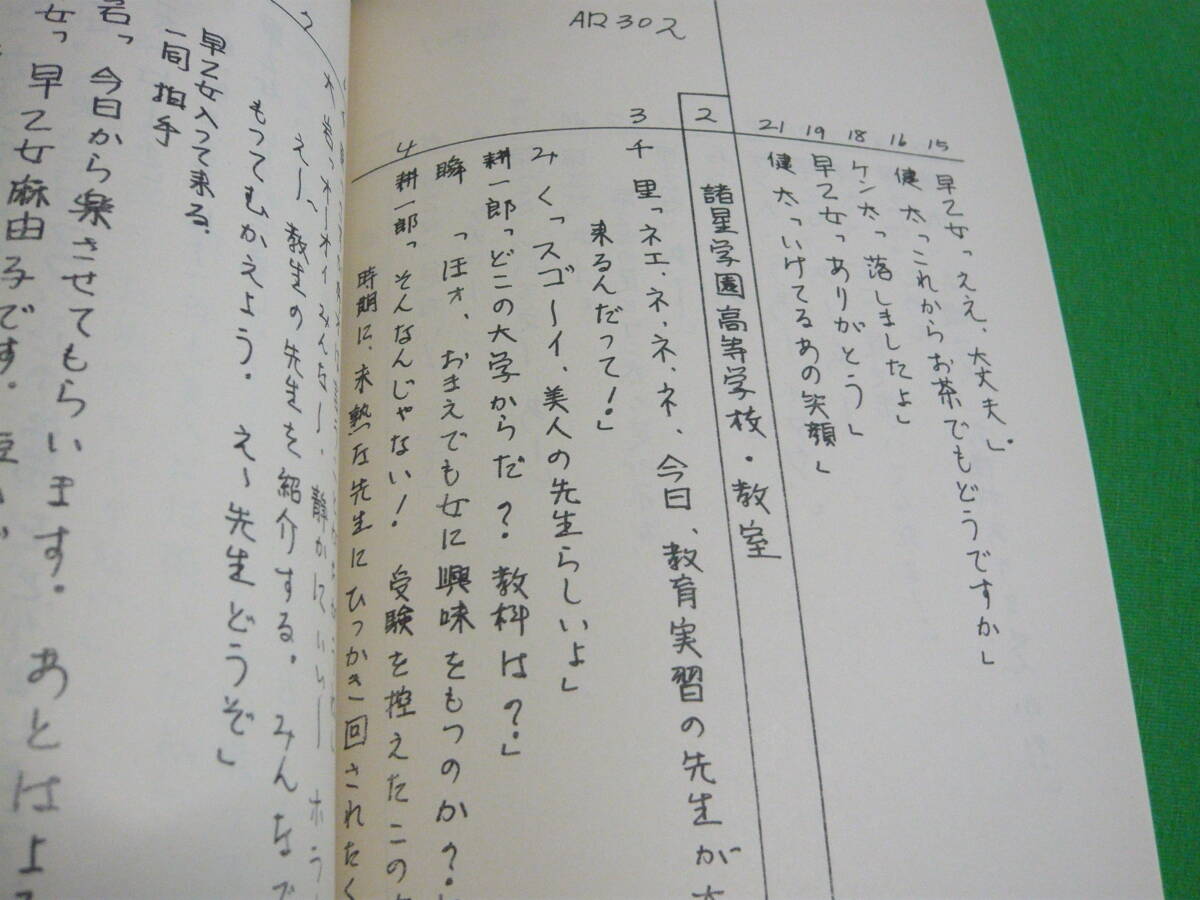 AR302
15
早乙女「ええ、大丈夫」
16
健太「これからお茶でもどうですか」
18
ケン太「落しましたよ」
19
早乙女「ありがとう」
21
健太「いけてるあの笑顔」
2
諸星学園高等学校・教室
3
千里「ネエ、ネ、ネ、ネ、今日、教育実習の先生が
来るんだって!」
みく「スゴーイ、美人の先生らしいよ」
耕一郎「どこの大学からだ?教科は?」
瞬「ほォ、おまえでも女に興味をもつのか?
4
耕一郎「そんなんじゃない!受験を控えたこの
時期に、未熟な先生にひっかき回されたく
みんなー、静かにいいー
えー、教生の先生を紹介する。みんなで
もってむかえよう。えー先生どうぞ」
早乙女入って来る。
一同 拍手
今日から楽させてもらいます。あとはよ
早乙女麻由子です。